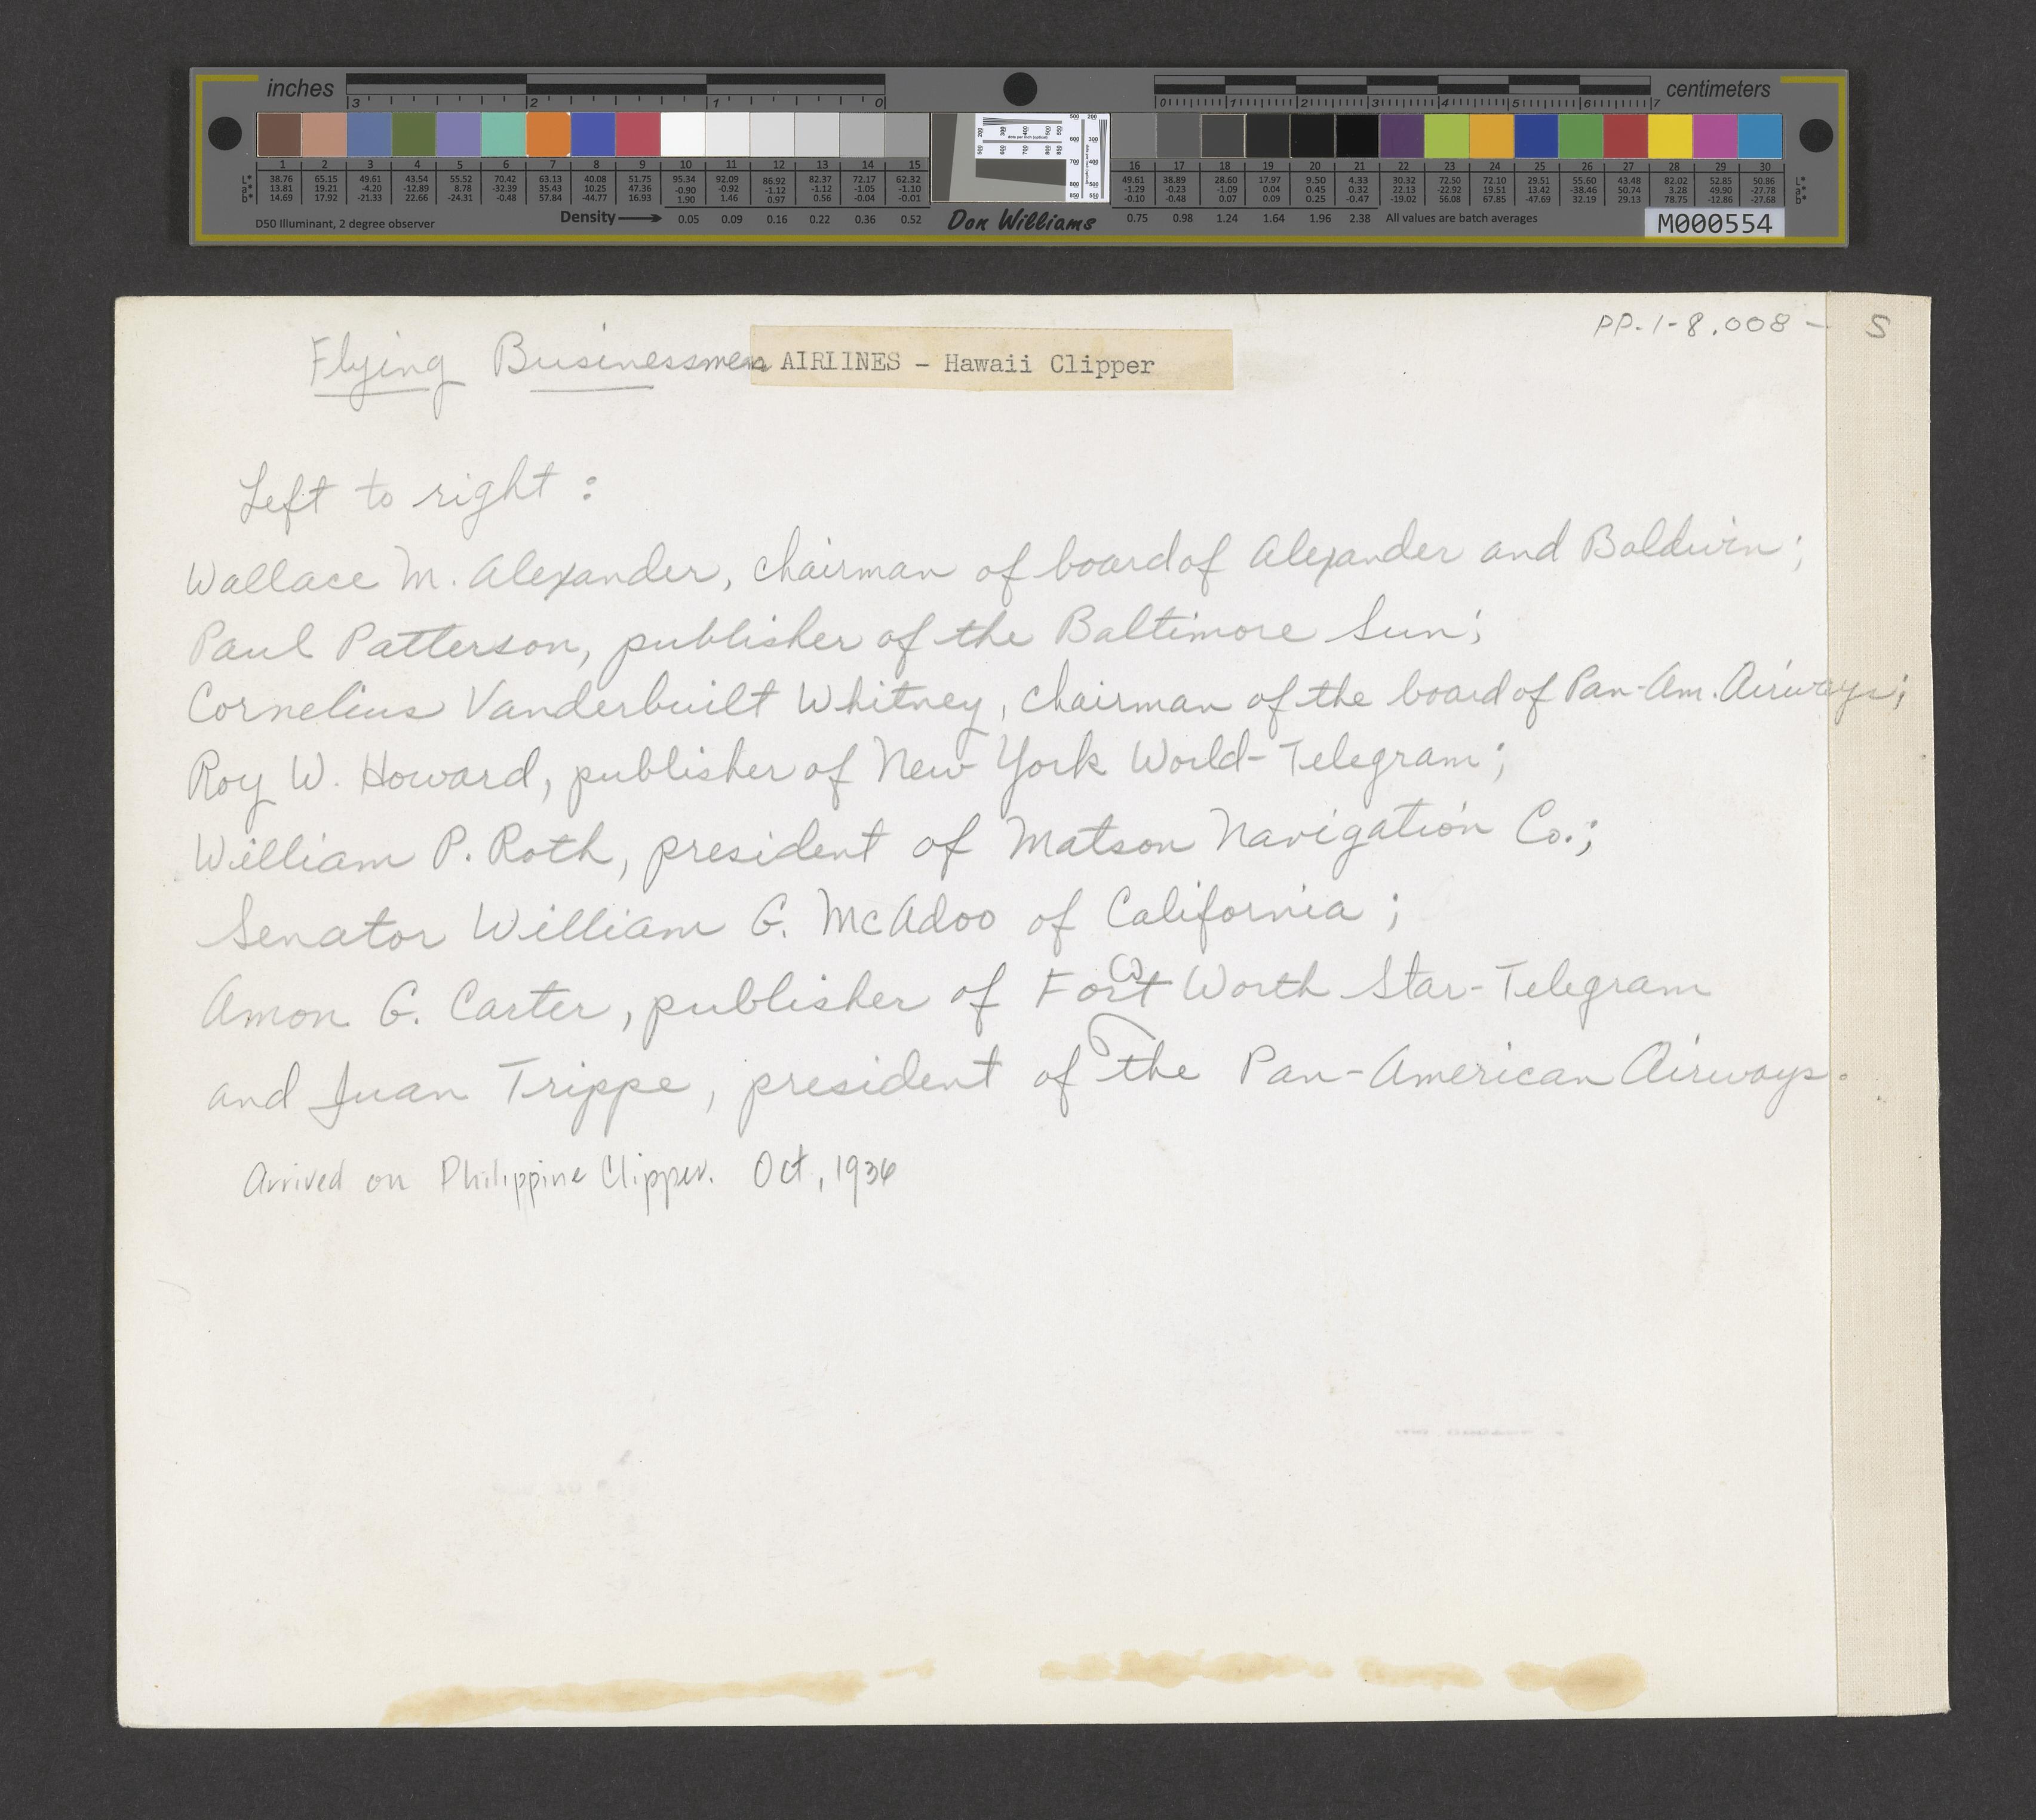 inches 3 2 1 0 0 1 2 3 4 5 6 7 centimeters
1 2 3 4 5 6 7 8 9 10 11 12 13 14 15 16 17 18 19 20 21 22 23 24 25 26 27 28 29 30
L* 38.76 65.15 49.61 43.54 55.52 70.42 63.13 40.08 51.75 95.34 92.09 86.92 82.37 72.17 62.32 49.61 38.89 28.60 17.97 9.50 4.33 30.32 72.50 72.10 29.51 55.60 43.48 82.02 52.85 50.86 L*
a* 13.81 19.21 -4.20 -12.89 8.78 -32.39 35.43 10.25 47.36 -0.90 -0.92 -1.12 -1.12 -1.05 -1.10 -1.29 -0.23 -1.09 0.04 0.45 0.32 22.13 -22.92 19.51 13.42 -38.46 50.74 3.28 49.90 -27.78 a*
b* 14.69 17.92 -21.33 22.66 -24.31 -0.48 57.84 -44.77 16.93 1.90 1.46 0.97 0.56 -0.04 -0.01 -0.10 -0.48 0.07 0.09 0.25 -0.47 -19.02 56.08 67.85 -47.69 32.19 29.13 78.75 -12.86 -27.68 b*
D50 Illuminant, 2 degree observer Density 0.05 0.09 0.16 0.22 0.36 0.52 Don Williams 0.75 0.98 1.24 1.64 1.96 2.38 All values are batch averages M000554
PP-1-8.008- S
Flying Businessmen AIRLINES - Hawaii Clipper
Left to right :
Wallace M. Alexander, chairman of board of Alexander and Baldwin;
Paul Patterson, publisher of the Baltimore Sun;
Cornelius Vanderbuilt Whitney, chairman of the board of Pan-Am. Airways;
Roy W. Howard, publisher of New York World-Telegram;
William P. Roth, president of Matson Navigation Co.;
Senator William G. McAdoo of California ;
Amon G. Carter, publisher of Fort Worth Star-Telegram
and Juan Trippe, president of the Pan-American Airways.
Arrived on Philippine Clipper. Oct, 1936